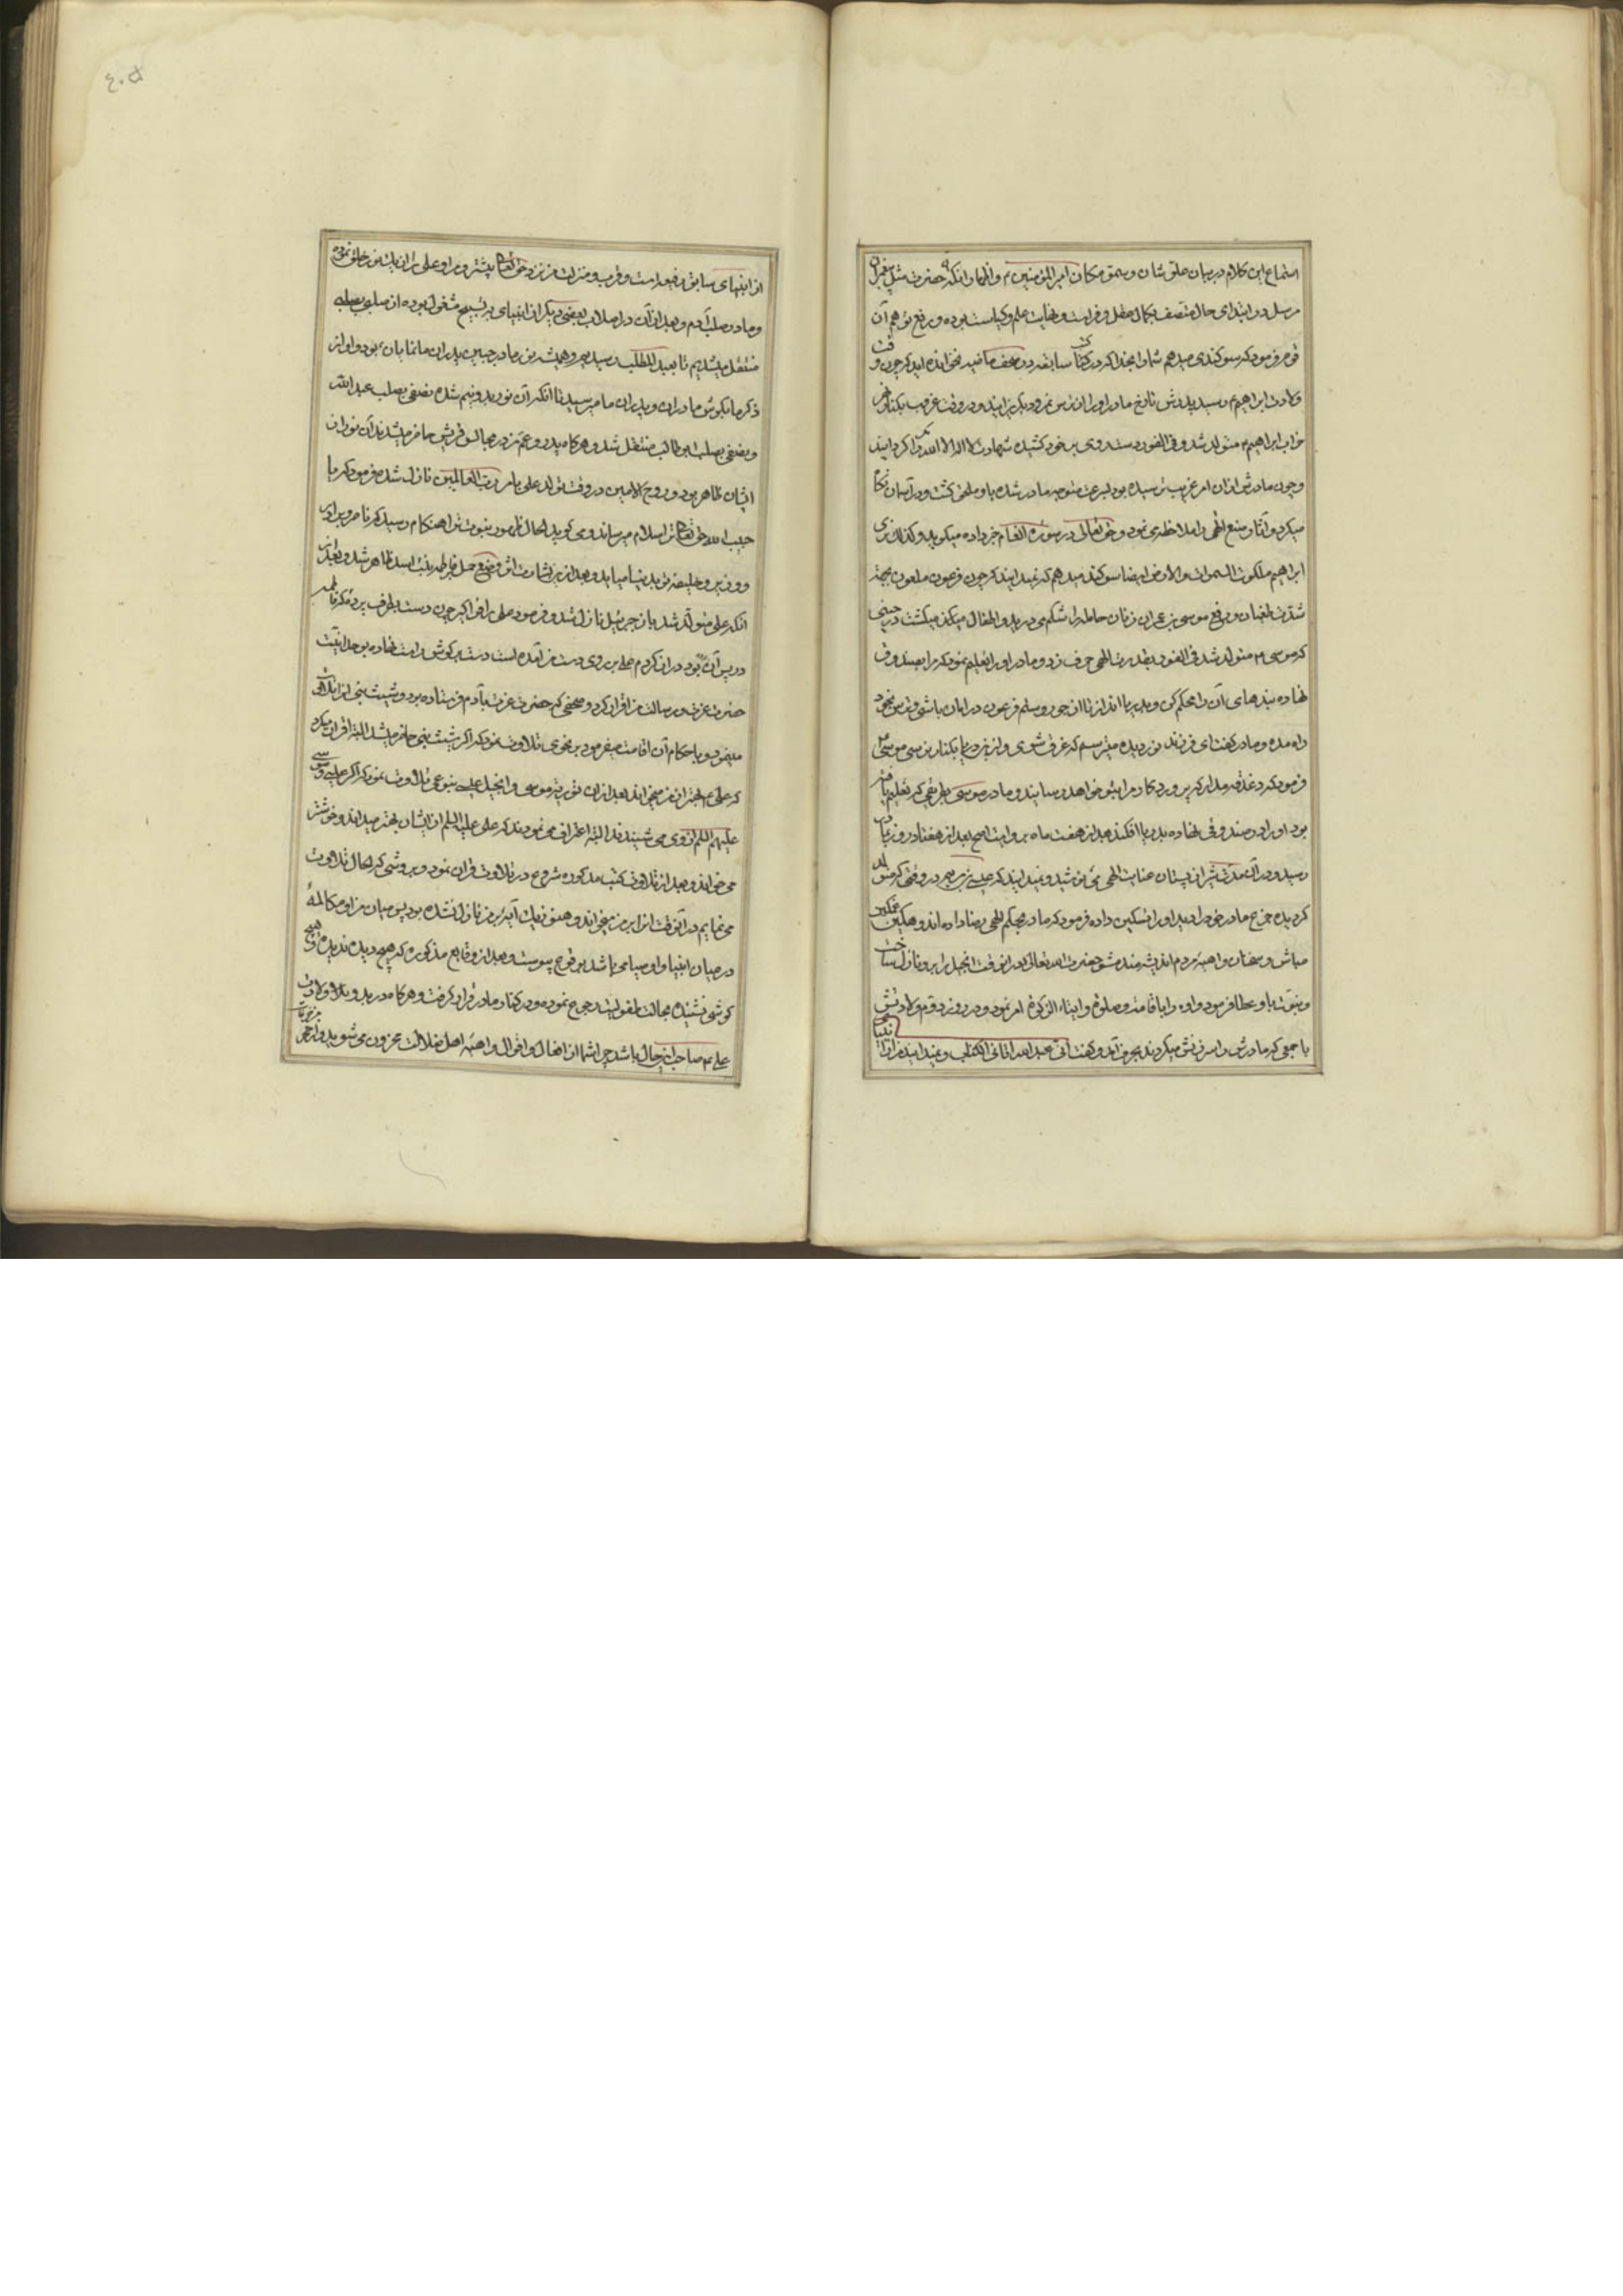 استماع این کلام در بیان علو شان و سمو مکان امیر المؤمنین م و اظهار انکه حضرت مثل پیغمبران
مرسل در ابتدای حال متصف بکمال عقل و فراست و نهایت علم و کیاست بوده و رفع توهم آن
قوم فرمود که سوکند می میدهم شما را بخدا که در کتب سابقه و در صحف ماضیه نخوانده اید که چون وقت
ولادت ابراهیم م رسید پدرش تارخ مادر او را از ترس نمرود بکریزانید و در وقت غروب بکنار نهر
ابراهیم م متولد شد و فی الفور دست بر روی خود کشیده شهادت لا اله الا الله را
و چون مادرش از ان امر غریب ترسیده بود بسرعت متوجه مادر شده باو ملحق کشت و در آسمان نکاه
میکرد و آثار صنع الهی را ملاحظه می نمود و حق تعالی در سوره انعام خبر داده میکوید و کذلک نری
ابراهیم ملکوت السموات و الارض ایضا سوکند میدهم که نمیدانید که چون فرعون ملعون بجهة
شدت طغیان و رفع موسی بن عمران زنان حامله را شکم می درید و اطفال میکشت در حینی
که موسی م متولد شد فی الفور بقدرت الهی حرف زد و مادر او را تعلیم نمود که مرا بصندوق
نهاده بندهای آن را محکم کن و بدریا انداز تا از جور و ستم فرعون در امان باشی و ترس بخود
راه مده و مادر کفت ای فرزند نور دیده میترسم که غرق شوی و از بکنار موسی م
فرمود که دغدغه مدار که پروردکار مرا بتو خواهد رسانید و مادر موسی بطریقی که تعلیم یافته
بود او را در صندوقی نهاده بدریا افکند بعد از هفت ماه بروایت اصح بعد از هفتاد روز باو
رسید و در آن مدت شیر از پستان عنایت الهی می نوشید و نمیدانید که عیسی بن مریم در وقتی که متولد
کردیده جزع مادر خود را دید او را تسکین داده فرمود که مادر بحکم الهی رضا داده اندوهکین
مباش و سخنان واهیه مردم اندیشه مند مشو حضرت الله تعالی در آنوقت انجیل را برو نازل ساخت
و نبوت باو عطا فرمود و او را باقامت صلوة و ایتاء الزکوة امر نمود و در روز دوم ولادتش
با جمعی که مادرش را سرزنش میکردند بحرف آمد و کفت انی عبدالله اتانی الکتاب و نمیدانید مرا از انبیا
از انبیای سابق رفیعتر است و قرب و منزلت من نزد حق تعالی بیشتر و مرا و علی را از یک نور خلق نموده
و ما در صلب آدم و بعد از آن در اصلاب بعضی دیکر از انبیای به تسبیح مشغول بوده از صلبی بصلبی
منتقل میشدیم تا بعبد المطلب رسیدیم و همیشه نور ما در جبین پدران ما نمایان بود و آواز
ذکر ما بکوش مادران و پدران ما میرسید تا انکه آن نور بدو نیم شده نصفی بصلب عبدالله
و نصفی بصلب ابو طالب منتقل شد و هرکاه پدر و عم من در مجالس قریش حاضر میشدند آن نور از
ایشان ظاهر بود و روح الامین در وقت تولد علی بامر رب العالمین نازل شده فرمود که یا
حبیب الله حق تعالی ترا سلام میرساند و می کوید الحال ظهور نبوت ترا هنکام رسید که ناصر و برادر
و وزیر و خلیفه تو بدنیا میاید و بعد از بشارت اثر وضع حمل فاطمه بنت اسد ظاهر شد و بعد از
انکه علی متولد شد باز جبرئیل نازل شد و فرمود علی را فراکیر چون دست بطرف پرده که فاطمه
در پس آن بود دراز کردم علی بر روی دست من آمده است دست بر کوش راست نهاده بوحدانیت
حضرت عزت و برسالت من اقرار کرد و صحفی که حضرت عزت بآدم فرستاده بود و شیث نبی
مینمود و باحکام آن اقامت میفرمود بنحوی تلاوت نمود که اکر شیث نبی حاضر میشد البته اقرار میکرد
که علی م بهتر از من میخواند بعد از ان توریة موسی و انجیل عیسی بنوعی تلاوت نمود که اکر عیسی و موسی
علیهم السلام از وی می شنیدند البته اعتراف می نمودند که علی علیه السلم از ایشان بهتر میداند و خوشتر
می خواند و بعد از تلاوت کتب مذکوره شروع در تلاوت قرآن نمود و بروشی که الحال تلاوت
می نمایم در آنوقت از ابر من میخواند و هنوز یک آیه بر من نازل نشده بود پس میان من او مکالمهٔ
در میان انبیا و اوصیا می باشد بوقوع پیوست و بعد از وقایع مذکوره که هیچ دیده ندیده و هیچ
کوشی نشنیده بحالت طفولیت رجوع نموده و در کنار مادر قرار کرفت و هرکاه در بدو ولادت
علی م صاحب این حال باشد چرا شما از افعال و اقوال واهیه اهل ضلالت محزون می شوید